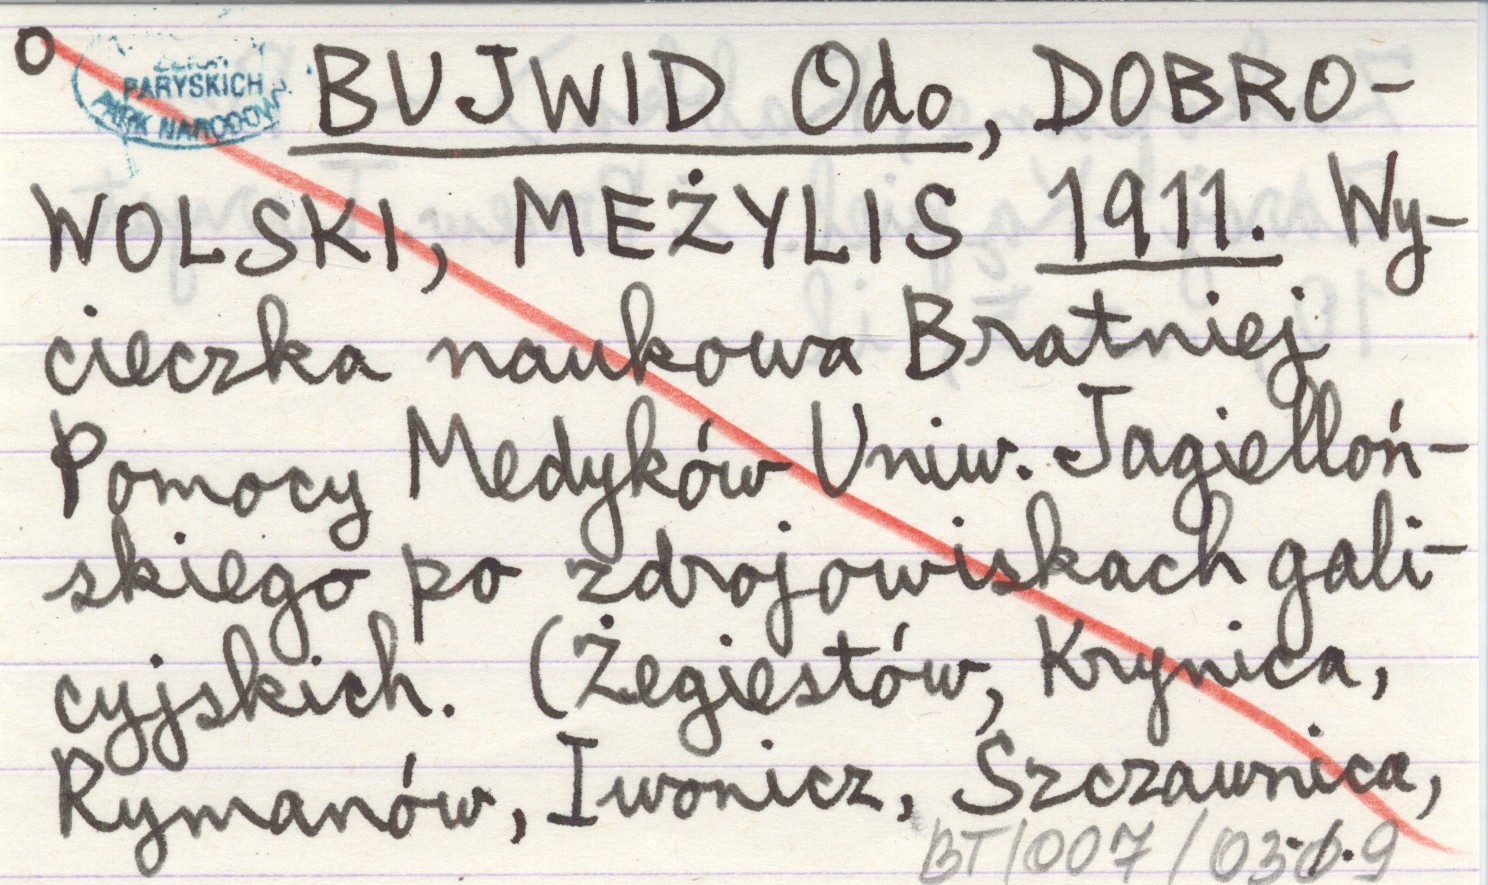 o
PARYSKICH
PARK NARODOWY
BUJWID Odo, DOBRO-
WOLSKI, MEŻYLIS 1911. Wy-
cieczka naukowa Bratniej
Pomocy Medyków Uniw. Jagielloń-
skiego po zdrojowiskach gali-
cyjskich. (Żegiestów, Krynica,
Rymanów, Iwonicz, Szczawnica,
BT/007/03